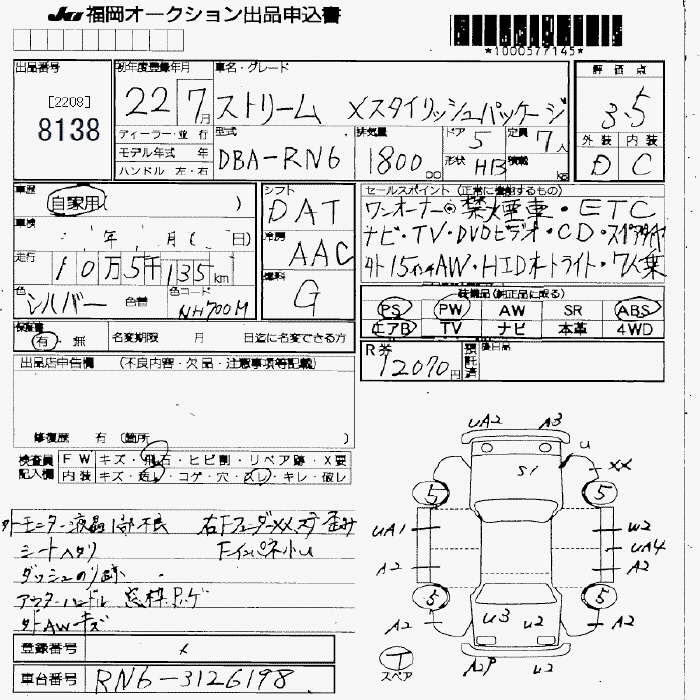 JU 福岡オークション出品申込書
*1000577145*
出品番号
[2208]
8138
初年度登録年月
22 7月
車名・グレード
ストリーム Xスタイリッシュパッケージ
評価点
3.5
外装 内装
D C
ディーラー・並行
モデル年式 年
ハンドル 左・右
型式
DBA-RN6
排気量
1800 cc
ドア 5
形状 HB
定員 7人
積載 kg
車歴
自家用( )
車検
年 月( 日)
走行
10万5千135km
色
シルバー
色替
色コード
NH700M
シフト
DAT
冷房
AAC
燃料
G
セールスポイント(正常に機能するもの)
ワンオーナー◎禁煙車・ETC
ナビ・TV・DVDビデオ・CD・スペアタイヤ
外15インチAW・HIDオートライト・7人乗
装備品(純正品に限る)
PS PW AW SR ABS
エアB TV ナビ 本革 4WD
保証書
有・無
名変期限 月 日迄に名変できる方
R券
12070円
預託済
後日品
出品店申告欄 (不良内容・欠品・注意事項等記載)
修復歴 有(箇所 )
検査員記入欄
FW キズ・飛石・ヒビ割・リペア跡・X要
内装 キズ・汚れ・コゲ・穴・スレ・キレ・破レ
外モニター液晶1部不良 右Fフェンダーxxオす歪み
シートヘタリ Fインパネ小u
ダッシュのり跡
アウターハンドル 窓枠P.ゲ
外AWキズ
登録番号
x
車台番号
RN6-3126198
uA2 A3
u
S1
xx
5 5
uA1 u2
uA4
A2 A2
5 5
A2 u3 u2 A2
T
スペア
A2P u2